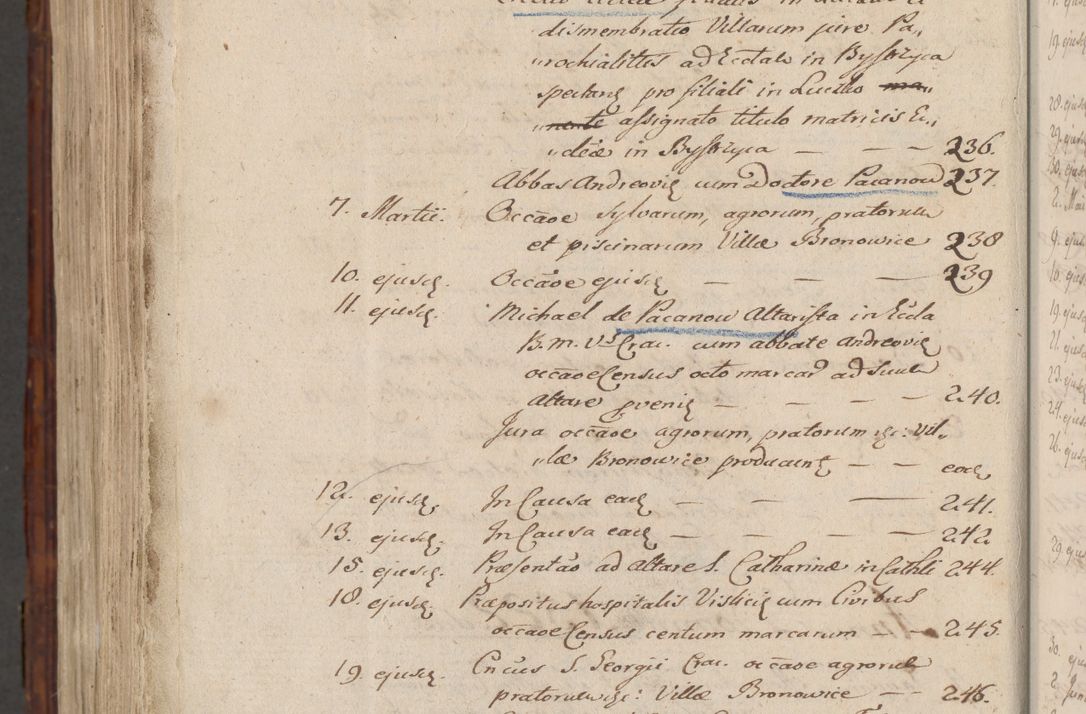 dismembratio Villarum jure Pa„
„rochialitatis ad Ecclam in Bystrzyca
spectans pro filiali in Luczko ma„
„nente assignato titulo matricis Ec„
„clesiæ in Bystrzyca — — — 236.
Abbas Andreovien cum Doctore Pacanow 237.
7. Martii. Occaõe sylvarum, agrorum, pratorum
et piscinarum Villæ Bronowice 238
10. ejusd. Occaõe ejusd — — — 239
11. ejusd. Michael de Pacanow Altarista in Eccla
B. M. V. Crac. cum abbate Andreovien
occaõe Census octo marcar ad suum
Altare proven — — — 240.
Jura occaõe agrorum, pratorum &c: Vil„
„læ Bronowice producunt — — ead
12. ejusd. In Causa ead — — — 241.
13. ejusd. In Causa ead — — — 242.
15. ejusd. Præsentao ad Altare S. Catharinæ in Cathli 244.
18. ejusd. Præpositus hospitalis Vislicien cum Civibus
occaõe Census centum marcarum — — 245.
19. ejusd. S. Georgii Crac. occaõe agrorum
pratorum &c: Villæ Bronowice — — 246.